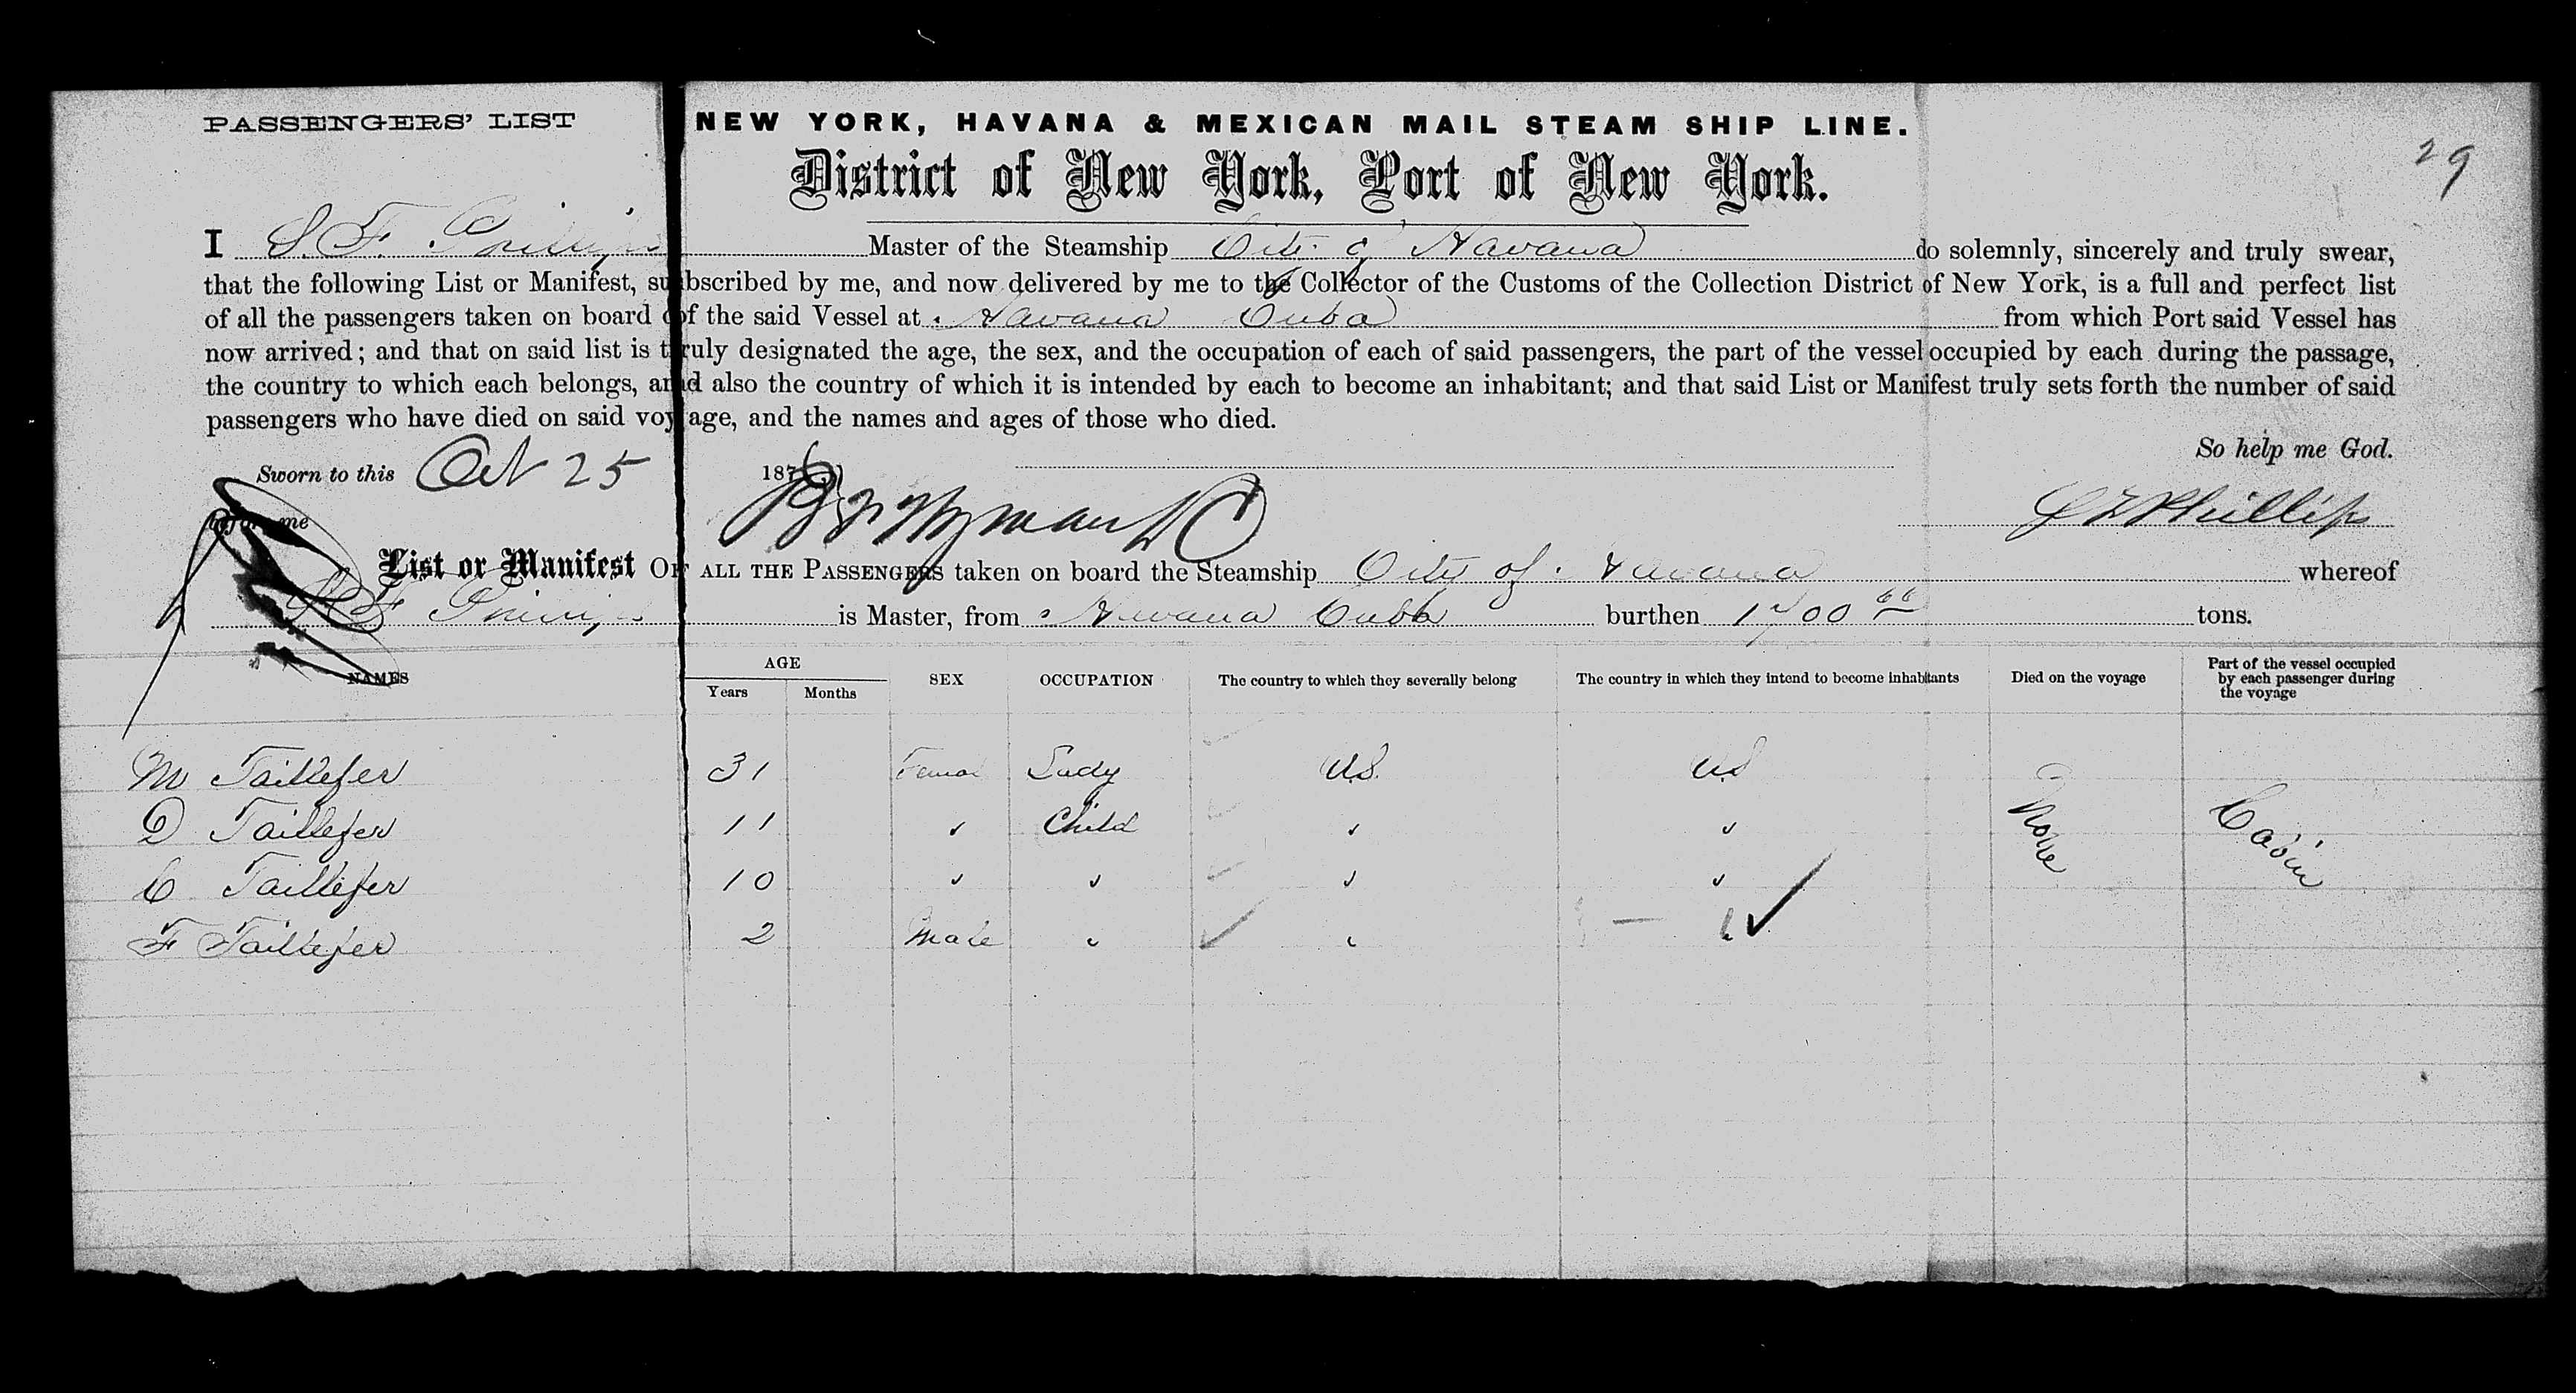 PASSENGERS' LIST NEW YORK, HAVANA & MEXICAN MAIL STEAM SHIP LINE.
29
District of New York, Port of New York.
I S. F. Phillips Master of the Steamship City of Havana do solemnly, sincerely and truly swear,
that the following List or Manifest, subscribed by me, and now delivered by me to the Collector of the Customs of the Collection District of New York, is a full and perfect list
of all the passengers taken on board of the said Vessel at Havana Cuba from which Port said Vessel has
now arrived; and that on said list is truly designated the age, the sex, and the occupation of each of said passengers, the part of the vessel occupied by each during the passage,
the country to which each belongs, and also the country of which it is intended by each to become an inhabitant; and that said List or Manifest truly sets forth the number of said
passengers who have died on said voyage, and the names and ages of those who died.
So help me God.
Sworn to this Oct 25 1876
before me Phillips
List or Manifest OF ALL THE PASSENGERS taken on board the Steamship City of Havana whereof
S F Phillips is Master, from Havana Cuba burthen tons.
NAMES AGE Years Months SEX OCCUPATION The country to which they severally belong The country in which they intend to become inhabitants Died on the voyage Part of the vessel occupied by each passenger during the voyage
M Taillefer 31 Female Lady U.S. U.S
D Taillefer 11 " Child " " None Cabin
C Taillefer 10 " " " "
F Taillefer 2 Male " " "